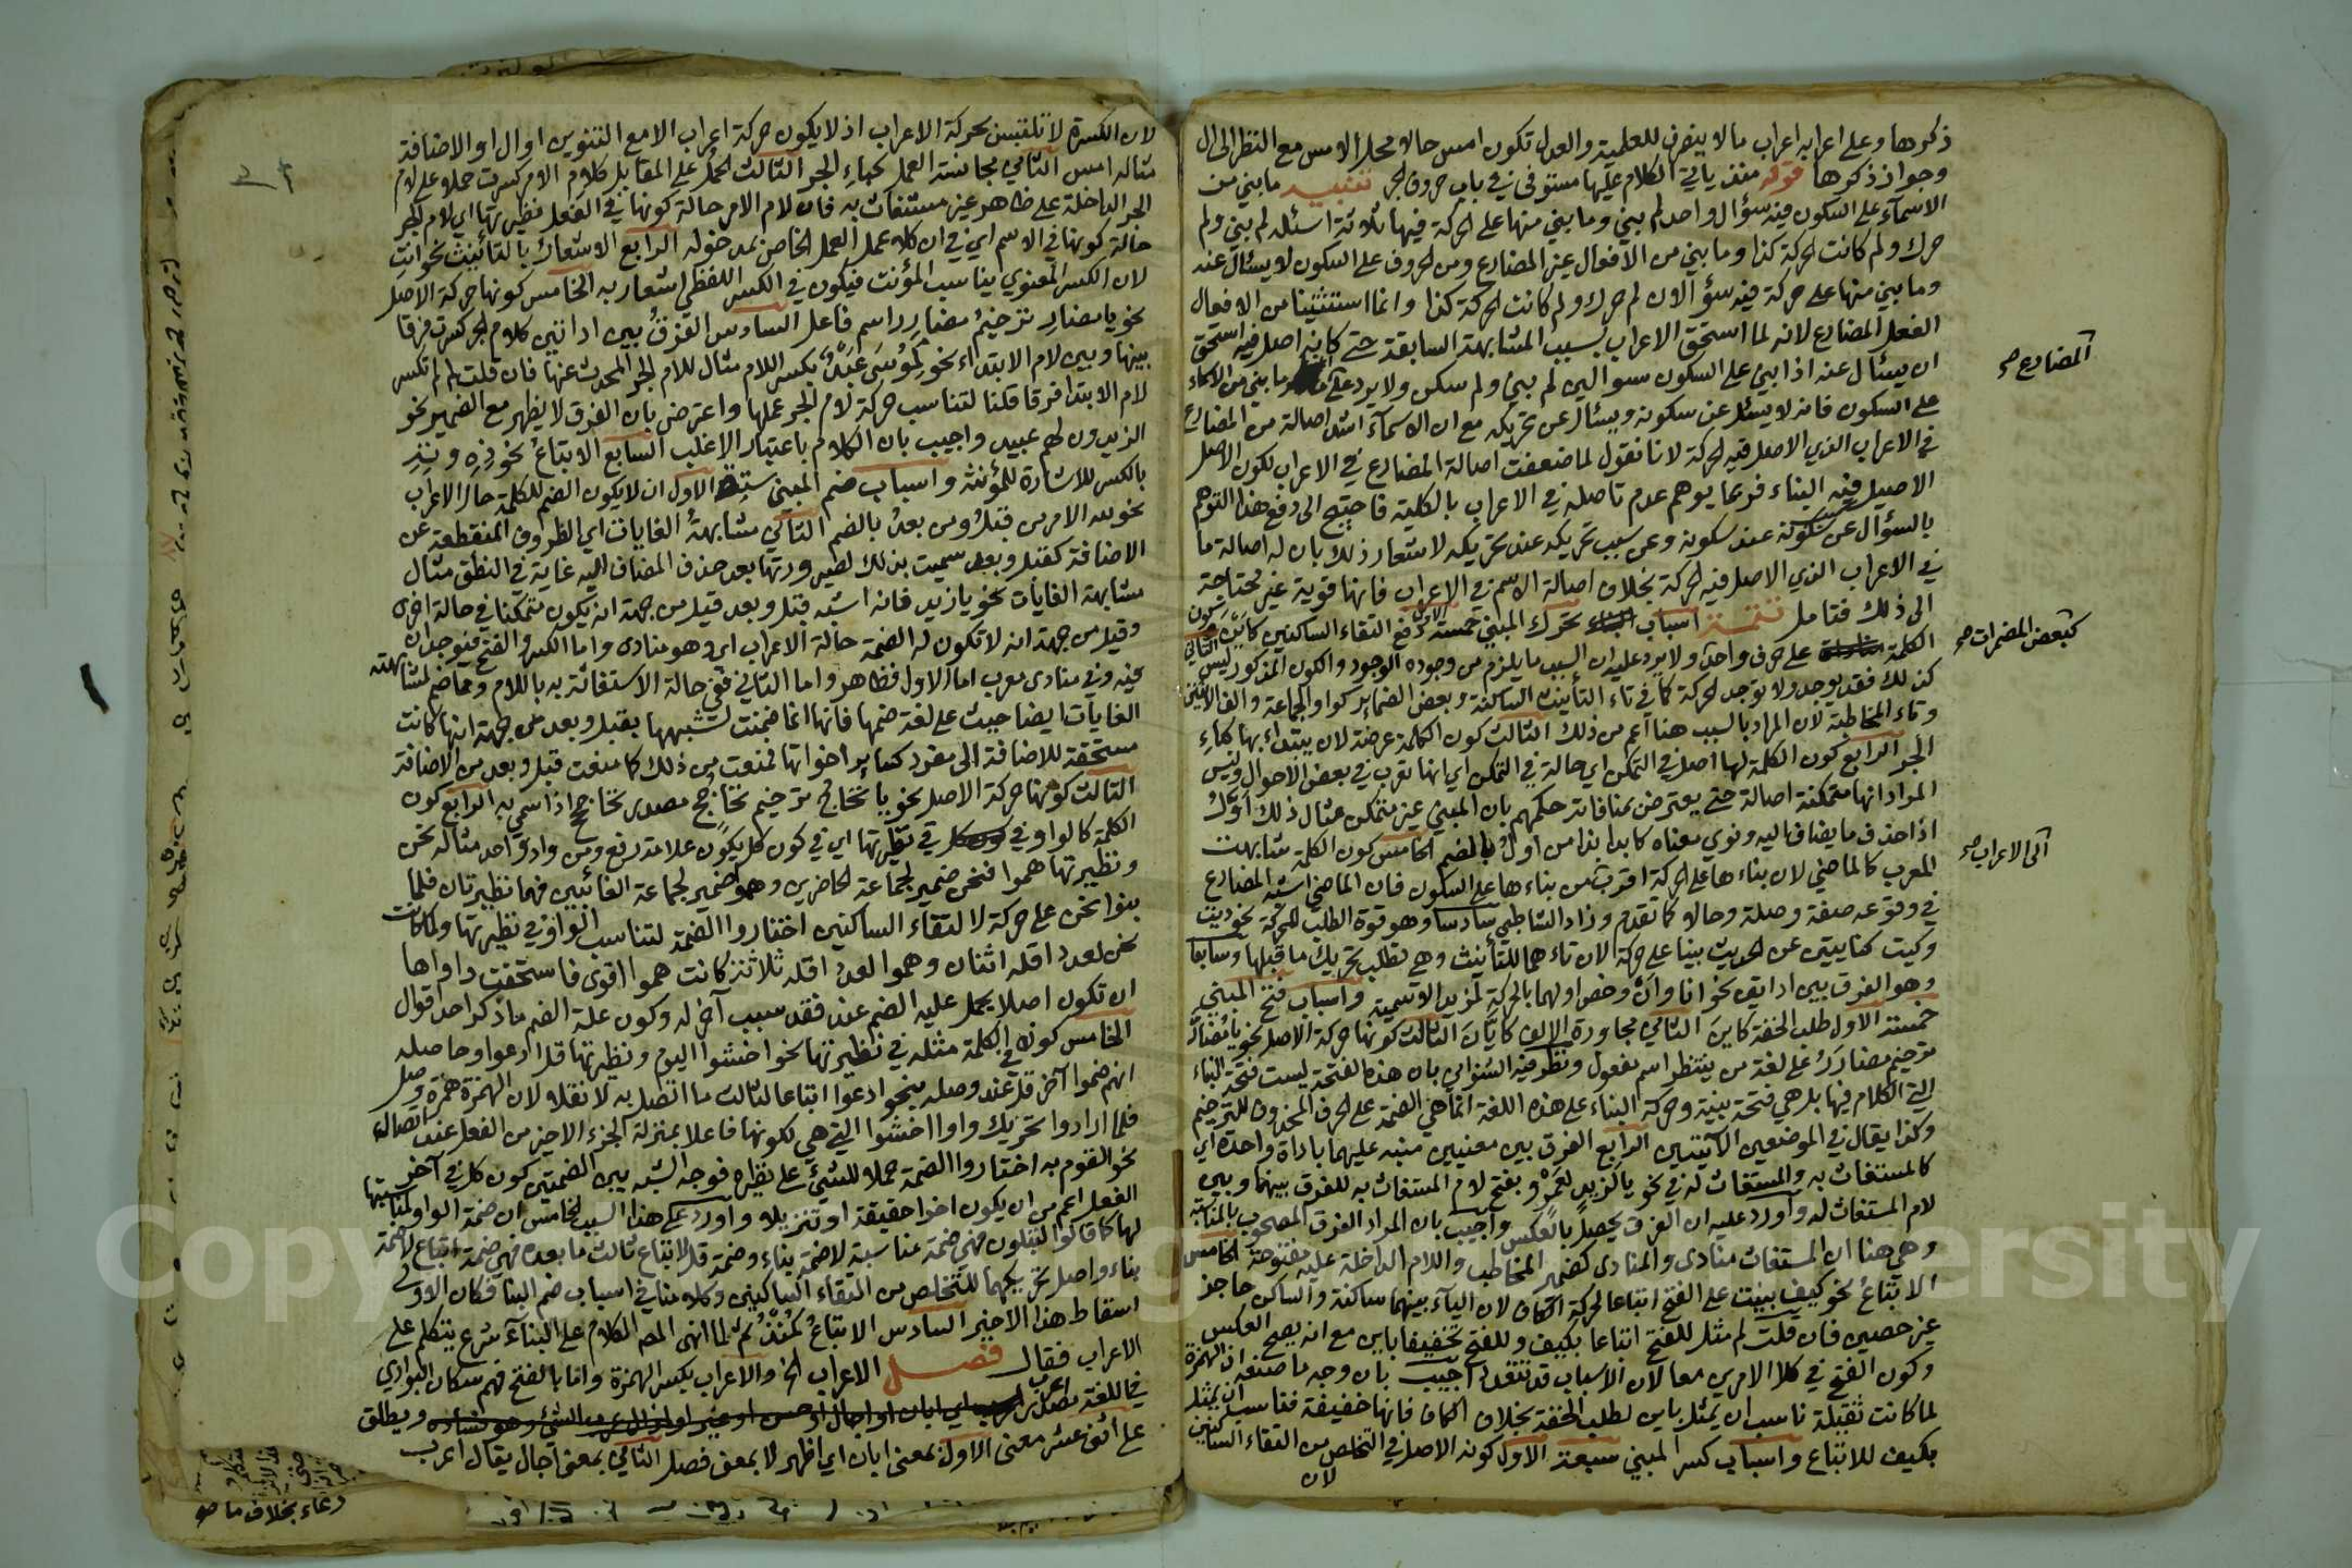 ذكرها وعلى اعرابه اعراب مالا ينصرف للعلمية والعدل تكون امس حالا محلا الامس مع النظر الى ال
وجواز ذكرها قوله منذ يأتي الكلام عليها مستوفى في باب حروف الجر تنبيه ما بني من
الاسماء على السكون فيه سؤال واحد لم بني وما بني منها على الحركة فيها ثلاثة اسئلة لم بني ولم
حرك ولم كانت الحركة كذا وما بني من الافعال غير المضارع ومن الحروف على السكون لا يسئال عنه
وما بني منها على حركة فيه سؤالان لم حرك ولم كانت الحركة كذا وانما استثنينا من الافعال
الفعل المضارع لانه لما استحق الاعراب بسبب المشابهة السابقة حتى كانه اصل فيه استحق
ان يسئال عنه اذا بني على السكون سوالين لم بني ولم سكن ولا يرد على ما بني من الاسماء
على السكون فانه لا يسئل عن سكونه ويسئال عن تحريكه مع ان الاسماء اشد اصالة من المضارع
في الاعراب الذي الاصل فيه الحركة لانا نقول لما ضعفت اصالة المضارع في الاعراب لكون الاصل
الاصيل فيه البناء فربما يوهم عدم تاصله في الاعراب بالكلية فاحتيج الى دفع هذا التوهم
بالسؤال عن سكونه عند سكونه وعن سبب تحريكه عند تحريكه لاشعار ذلك بان له اصالة ما
في الاعراب الذي الاصل فيه الحركة بخلاف اصالة الاسم في الاعراب فانها قوية غير محتاجة
الى ذلك فتامل تتمة اسباب تحرك المبني خمسة الاول دفع التقاء الساكنين كاين الثاني كون
الكلمة على حرف واحد ولا يرد عليه ان السبب ما يلزم من وجوده الوجود والكون المذكور ليس
كذلك فقد يوجد ولا توجد الحركة كما في تاء التأنيث الساكنة وبعض الضماير كواو الجماعة والف الاثنين
وتاء المخاطبة لان المراد بالسبب هنا اعم من ذلك الثالث كون الكلمة عرضة لان يبتداء بها كباءِ
الجر الرابع كون الكلمة لها اصل في التمكن اي حالة في التمكن اي انها تعرب في بعض الاحوال وليس
المراد انها متمكنة اصالة حتى يعترض بمنافاته حكمهم بان المبني غير متمكن مثال ذلك اوّل
اذا حذف ما يضاف اليه ونوي معناه كابدا بذا من اولُ بالضم الخامس كون الكلمة شابهت
المعرب كالماضي لان بناءها على الحركة اقرب من بناءها على السكون فان الماضي اشبه المضارع
في وقوعه صفة وصلة وحالا كما تقدم وزاد الشاطبي سادسا وهو قوة الطلب للحركة نحو ذيت
وكيت كنايتين عن الحديث بنيا على حركة الان تاءهما للتأنيث وهي تطلب تحريك ما قبلها وسابعا
وهو الفرق بين اداتين نحو انا وان وخص اولهما بالحركة لمزيد الاسمية واسباب فتح المبني
خمسة الاول طلب الخفة كاينَ الثاني مجاورة الالف كايّانَ الثالث كونها حركة الاصل نحو يا مُضارَ
ترخيم مضارَرُ على لغة من ينتظر اسم مفعول ونظر فيه الشنواني بان هذه الفتحة ليست فتحة البناء
التي الكلام فيها بل هي فتحة بنية وحركة البناء على هذه اللغة انما هي الضمة على الحرف المحذوف للترخيم
وكذا يقال في الموضعين الآتيتين الرابع الفرق بين معنيين منبه عليهما باداة واحدة اي
كالمستغاث به والمستغاث له في نحو يا لَزيد لِعَمرو وبفتح لام المستغاث به للفرق بينها وبين
لام المستغاث له وأورد عليه ان الفرق يحصل بالعكس وأجيب بان المراد الفرق المصحوب بالمناسبة
وهي هنا ان المستغاث منادى والمنادى كضمير المخاطب واللام الداخلة عليه مفتوحة الخامس
الاتباعُ نحو كيف بنيت على الفتح اتباعا لحركة الكاف لان الياء بينهما ساكنة والساكن حاجز
غير حصين فان قلت لم مثل للفتح اتباعا بكيف وللفتح تخفيفا باين مع انه يصح العكس
وكون الفتح في كلا الامرين معا لان الاسباب قد تتعدد أجيب بان وجه ما صنعه ان الهمزة
لما كانت ثقيلة ناسب ان يمثل باين لطلب الخفة بخلاف الكاف فانها خفيفة فناسب ان يمثل
بكيف للاتباع واسباب كسر المبني سبعة الاول كونه الاصل في التخلص من التقاء الساكنين
لان
المضارع صح
كبعض المضمرات صح
الى الاعراب صح
لان الكسرة لا تلتبس بحركة الاعراب اذ لا يكون حركة اعراب الا مع التنوين او ال او الاضافة
مثاله امس الثاني مجانسة العمل كباءِ الجر الثالث الحمل على المقابل كلام الامر كسرت حملا على لام
الجر الداخلة على ظاهر غير مستغاث به فان لام الامر حالة كونها في الفعل نظيرتها اي لام الجر
حالة كونها في الاسم اي في ان كلا عمل العمل الخاص بمدخوله الرابع الاشعار بالتانيث نحو انتِ
لان الكسر المعنوي يناسب المؤنث فيكون في الكسر اللفظي اشعار به الخامس كونها حركة الاصل
نحو يا مضارِ ترخيمُ مضارِرِ اسم فاعل السادس الفرقُ بين اداتين كلام الجر كسرت فرقا
بينها وبين لام الابتداء نحو لِمُوسَى عَبْدٌ بكسر اللام مثال للام الجر المحدث عنها فان قلت لم لم تكسر
لام الابتدا فرقا قلنا لتناسب حركة لام الجر عملها واعترض بان الفرق لا يظهر مع الضمير نحو
الزيدون لهم عبيد واجيب بان الكلام باعتبار الاغلب السابع الاتباعُ نحو ذِهِ وتِهِ
بالكسر للاشارة للمؤنثة واسباب ضم المبني ستة الاول ان لا يكون الضم للكلمة حال الاعراب
نحو لله الامر من قبلُ ومن بعدُ بالضم الثاني مشابهةُ الغايات اي الظروف المنقطعة عن
الاضافة كقبل وبعد سميت بذلك لصيرورتها بعد حذف المضاف اليه غاية في النطق مثال
مشابهة الغايات نحو يا زيد فانه اشبه قبل وبعد قيل من جهة انه يكون متمكنا في حالة اخرى
وقيل من جهة انه لا تكون له الضمة حالة الاعراب اي وهو منادى واما الكسر والفتح فيوجدان
فيه وفي منادى معرب اما الاول فظاهر واما الثاني ففي حالة الاستغاثة به باللام ومما ضم لمشابهته
الغايات ايضا حيث على لغة ضمها فانها انما ضمت لشبهها بقبل وبعد من جهة انها كانت
مستحقة للاضافة الى مفرد كساير اخواتها فمنعت من ذلك كما منعت قبل وبعد من الاضافة
الثالث كونها حركة الاصل نحو يا تحاجُّ ترخيم تحاجُج مصدر تحاجج اذا سمي به الرابع كون
الكلمة كالواو في نظيرتها اي في كون كل يكون علامة رفع ومن وادٍ واحد مثاله نحن
ونظيرتها هموا فنحن ضمير لجماعة الحاضرين وهمو ضمير لجماعة الغائبين فهما نظيرتان فلما
بنوا نحن على حركة لالتقاء الساكنين اختاروا الضمة لتناسب الواو في نظيرتها ولما كانت
نحن لعدد اقله اثنان وهموا لعدد اقله ثلاثة كانت هموا اقوى فاستحقت واواها
ان تكون اصلا يحمل عليه الضم عند فقد سبب آخر له وكون علة الضم ما ذكر احد اقوال
الخامس كونه في الكلمة مثله في نظيرتها نحو اخشوا اليوم ونظيرتها قل ادعوا وحاصله
انهم ضموا آخر قل عند وصله بنحو ادعوا اتباعا لثالث ما اتصل به لا نقلا لان الهمزة همزة وصل
فلما ارادوا تحريك واو اخشوا التي هي لكونها فاعلا بمنزلة الجزء الاخير من الفعل عند اتصاله
نحو القوم به اختاروا الضمة حملا للشئ على نظيره فوجه الشبه بين الضمتين كون كل في آخر
الفعل اعم من ان يكون اخرا حقيقة او تنزيلا واورد على هذا السبب الخامس ان ضمة الواو لمناسبتها
لها كما قالوا لتبلون فهي ضمة مناسبة لا ضمة بناء وضمة قل لاتباع ثالث ما بعده فهي ضمة اتباع لا ضمة
بناء واصل تحريكهما للتخلص من التقاء الساكنين وكلامنا في اسباب ضم البنا فكان الاولى
اسقاط هذا الاخير السادس الاتباعُ كمُنْذُ ثم لما انهى المص الكلام على البناء شرع يتكلم على
الاعراب فقال فصل الاعراب الخ والاعراب بكسر الهمزة واما بالفتح فهم سكان البوادي
في اللغة مصدر اعرب ويطلق
على اثنى عشر معنى الاول بمعنى ابان اي اظهر لا بمعنى فصل الثاني بمعنى اجال يقال اعرب
دعاء بخلاف ما صح
Copy University